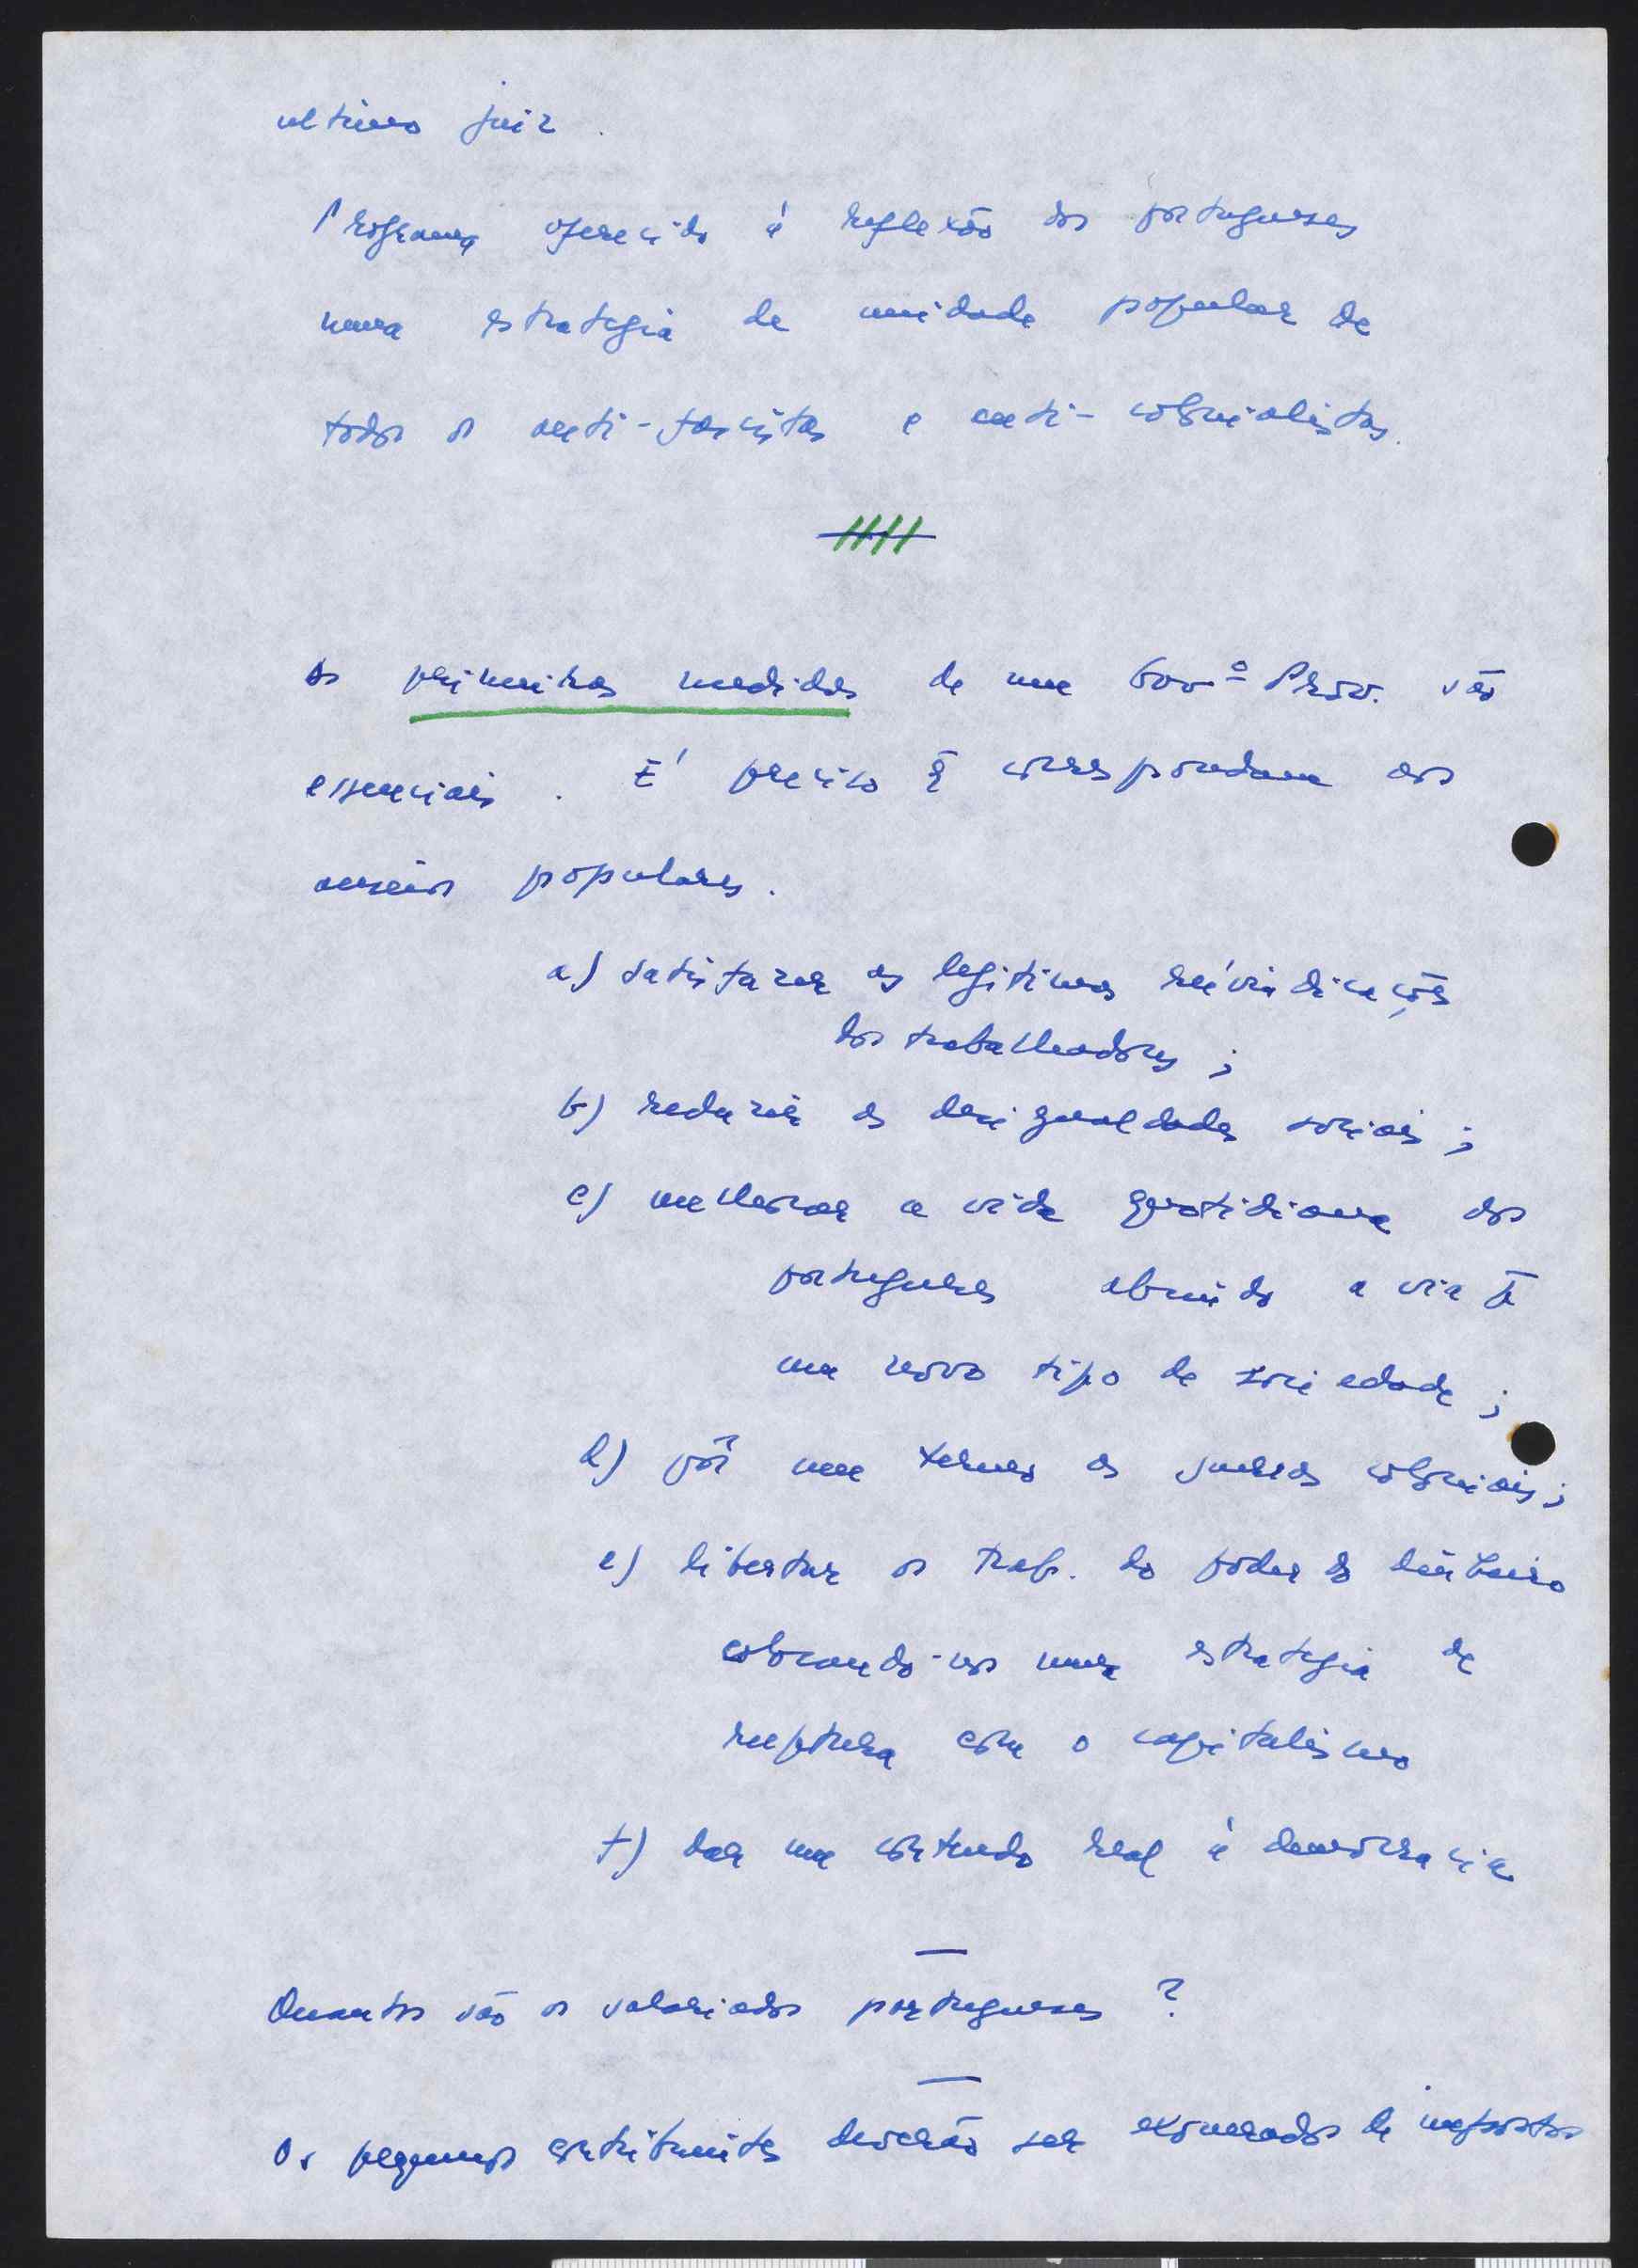 ultimo juiz.
Programa oferecido à reflexão dos portugueses
numa estrategia de unidade popular de
todos os anti-fascistas e anti-colonialistas.
As primeiras medidas de um Govº Prov. são
essenciais. É preciso q̃ correspondam aos
anseios populares.
a) satisfazer as legitimas reivindicações
dos trabalhadores;
b) reduzir as desigualdades sociais;
c) melhorar a vida quotidiana dos
portugueses abrindo a via p̃
um novo tipo de sociedade;
d) pôr um termo às guerras coloniais;
e) libertar os trab. do poder do dinheiro
colocando-nos numa estrategia de
ruptura com o capitalismo
f) dar um conteudo real à democracia
Quantos são os salariados portugueses?
Os pequenos contribuintes deverão ser exonerados de impostos